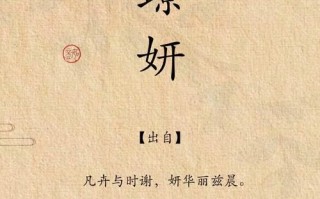 妍
【出自】
凡卉与时谢，妍华丽兹晨。